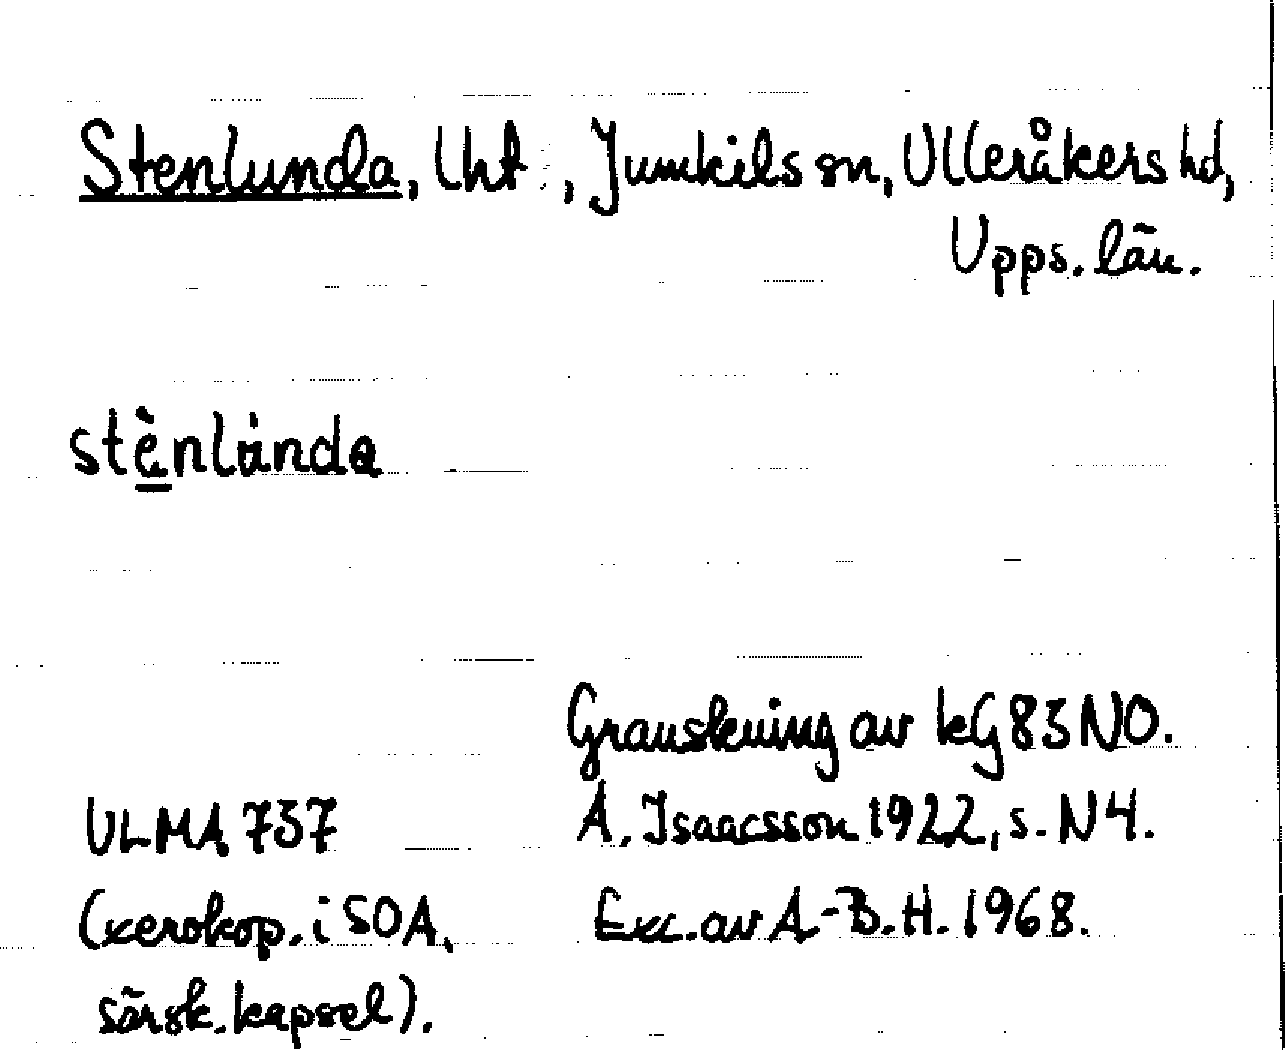 Stenlunda, lht, Jumkils sn, Ulleråkers hd,
Upps. län.
stènlùnda
Granskning av kG 83 NO.
ULMA 737 A. Isaacsson 1922, s. N 4.
(xerokop. i SOA, Exc. av A-B. H. 1968.
särsk. kapsel).